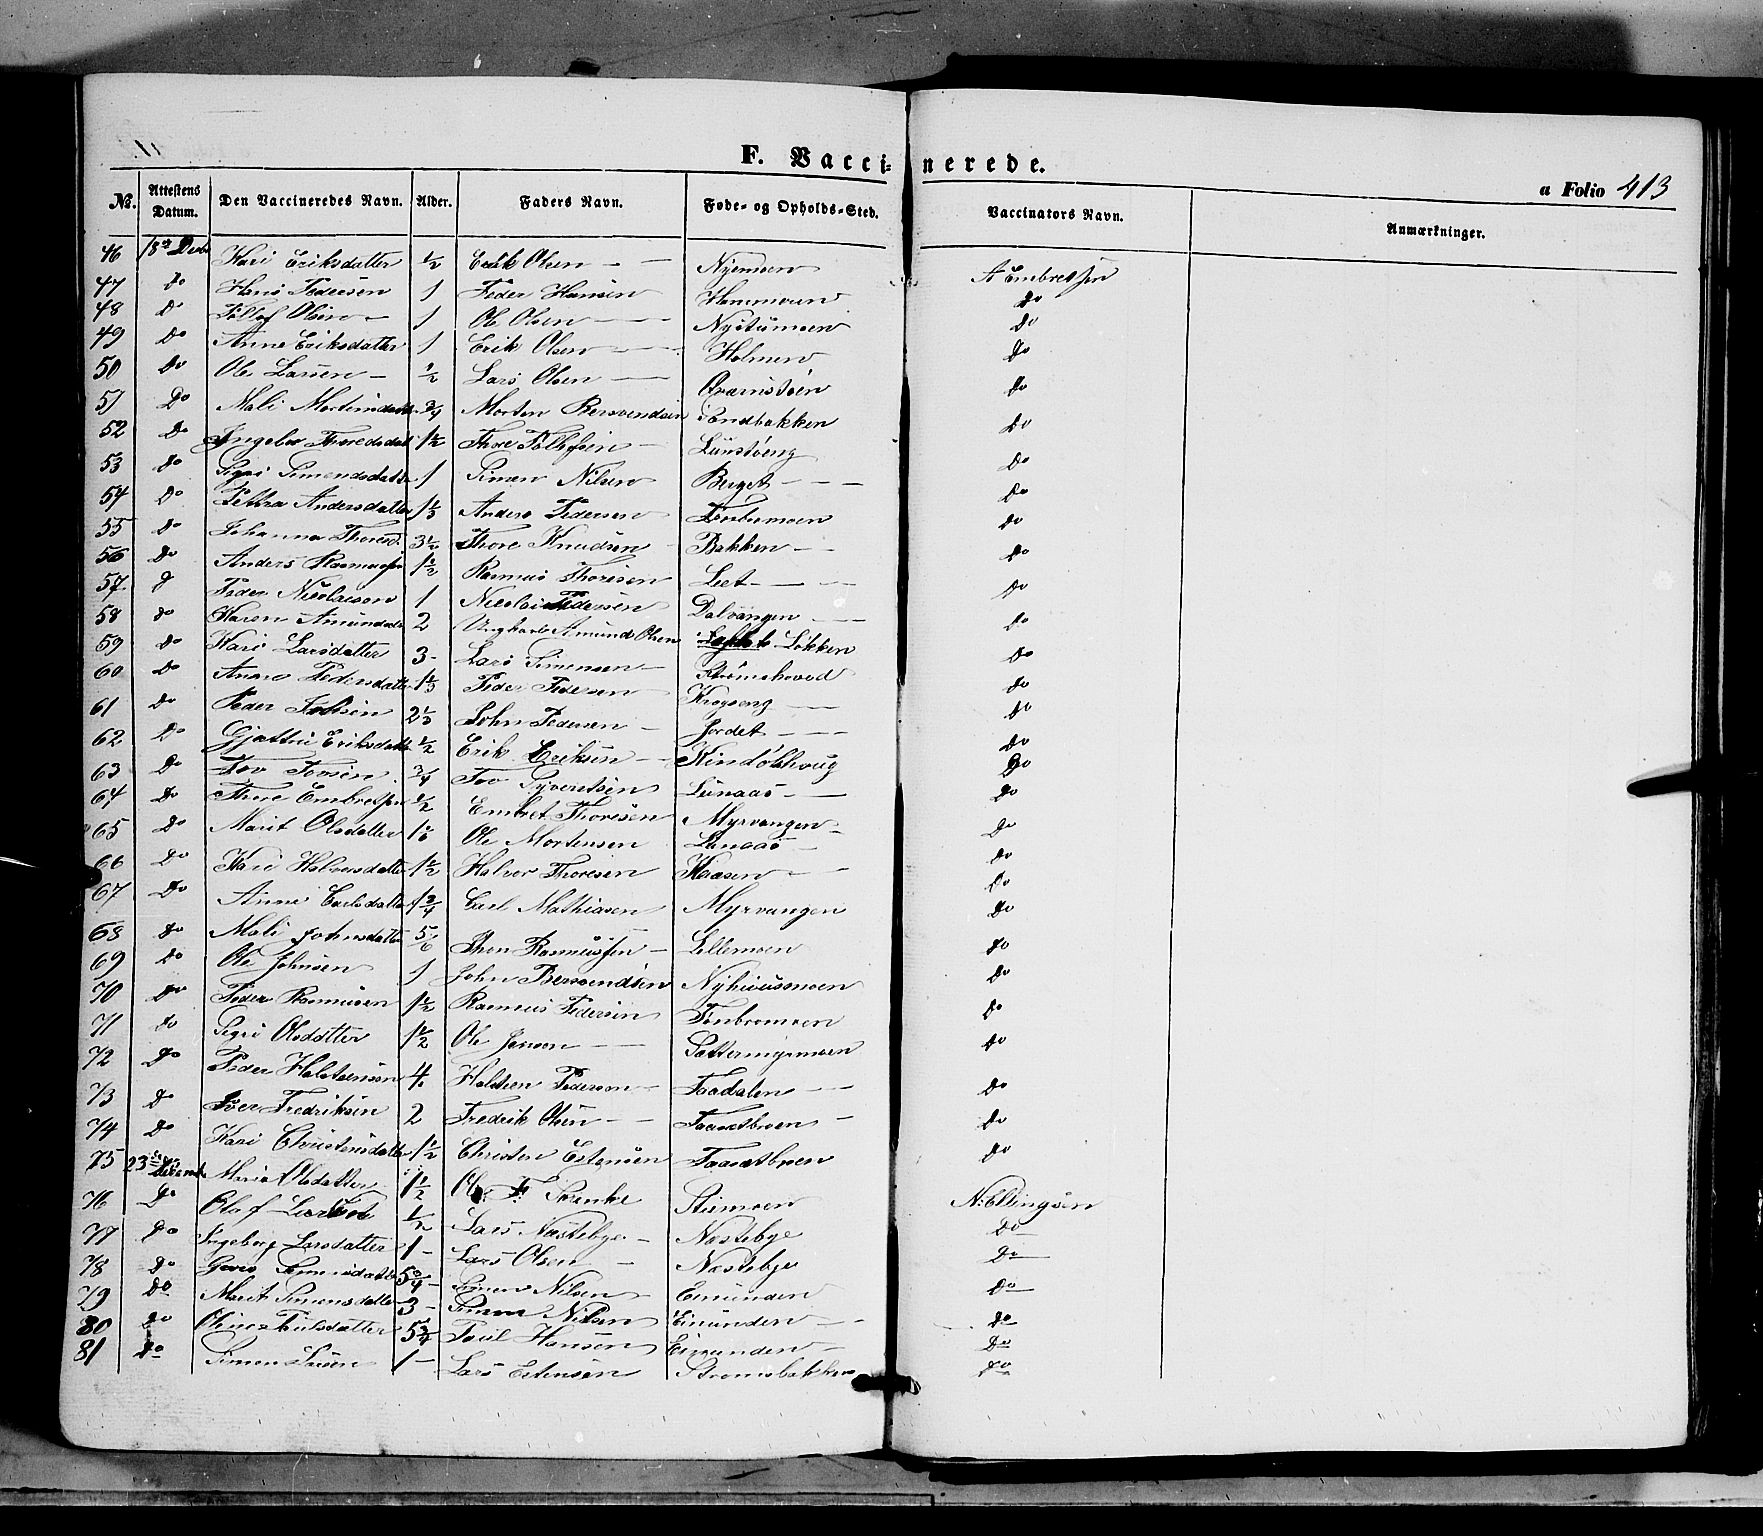 F. Vaccinerede.
a Folio 413
No. Attestens Datum. Den Vaccineredes Navn. Alder. Faders Navn. Føde- og Opholds-Sted. Vaccinators Navn. Anmærkninger.
46 18de Decbr Kari Eriksdatter 1/2 Erik Olsen Nyemoen A Embretsen
47 Do Hans Pedersen 1 Peder Hansen Do
48 Do Tollef Olsen 1 Ole Olsen Nystumoen Do
49 Do Anne Eriksdatter 1 Erik Olsen Holmen Do
50 Do Ole Larsen 1/2 Lars Olsen Qvernstøen Do
51 Do Mali Mortensdatter 3/4 Morten Bersvendsen Sandbakken Do
52 Do Ingebor Thoresdatt 1 1/2 Thore Tollefsen Lunstøeng Do
53 Do Sigri Simensdatter 1 Simen Nilsen Berget Do
54 Do Pettra Andersdatter 1 1/3 Anders Pedersen Do
55 Do Johanna Thoresd. 3 1/2 Thore Knudsen Bakken Do
56 Do Anders Rasmussen 1 1/2 Rasmus Thoresen Leet Do
57 Do Peder Nicolaisen 1 Nicolai Pedersen Dalvangen Do
58 Do Karen Amundsdatt 2 Ungkarl Amund Olsen Løkken Do
59 Do Kari Larsdatter 3 Lars Simensen Strømshoved Do
60 Do Anne Pedersdatter 1 1/3 Peder Pedersen Krogeng Do
61 Do Peder Johnsen 2 1/3 John Pedersen Jordet Do
62 Do Gjertru Eriksdatt 1/2 Erik Eriksen Kindølshoug Do
63 Do Tov Tovsen 3/4 Tov Syvertsen Lunaas Do
64 Do Thore Embretsen 1/2 Embret Thoresen Myrvangen Do
65 Do Marit Olsdatter Ole Mortensen Lunaas Do
66 Do Kari Halvorsdatter 1 1/2 Halvor Thoresen Kaasen Do
67 Do Anne Carlsdatter 1 3/4 Carl Mathiasen Myrvangen Do
68 Do Mali Johnsdatter 5/6 Rasmussen Lillemoen Do
69 Do Ole Johnsen 1 John Bersvendsen Nyhuusmoen Do
70 Do Peder Rasmusen 1 1/2 Rasmus Pedersen Tønbromoen Do
71 Do Sigri Olsdatter 1 1/2 Ole Jensen Sættermyrmoen Do
72 Do Peder Halstensen 4 Halsten Pedersen Faadalen Do
73 Do Iver Fredriksen 2 Fredrik Olsen Faasetbroen Do
74 Do Kari Christensdatter 1 1/2 Christen Estensen Faasetbroen Do
75 23de Decembr Maria Olsdatter 1 1/2 Ole F: Skenke Stumoen N: Ellingsen
76 Do Olaf Larsen 1/2 Lars Næstebye Næstebye Do
77 Do Ingeborg Larsdatter 1 Lars Olsen Næstebye Do
78 Do Simensdatter 5 3/4 Simen Nilsen Eimunden Do
79 Do Marit Simensdatter 3 Simen Nilsen Eimunden Do
80 Do Oline Paulsdatter 5 3/4 Poul Hansen Eimunden Do
81 Do Simen Larsen 1 Lars Estensen Strømsbakken Do